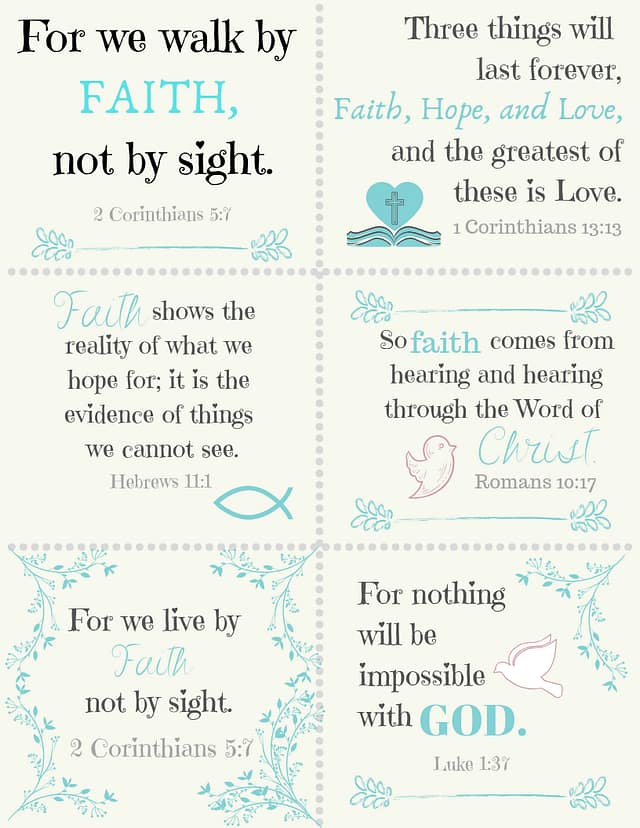 For we walk by
FAITH,
not by sight.
2 Corinthians 5:7
Three things will
last forever,
Faith, Hope, and Love,
and the greatest of
these is Love.
1 Corinthians 13:13
Faith shows the
reality of what we
hope for; it is the
evidence of things
we cannot see.
Hebrews 11:1
So faith comes from
hearing and hearing
through the Word of
Christ.
Romans 10:17
For we live by
Faith
not by sight.
2 Corinthians 5:7
For nothing
will be
impossible
with GOD.
Luke 1:37